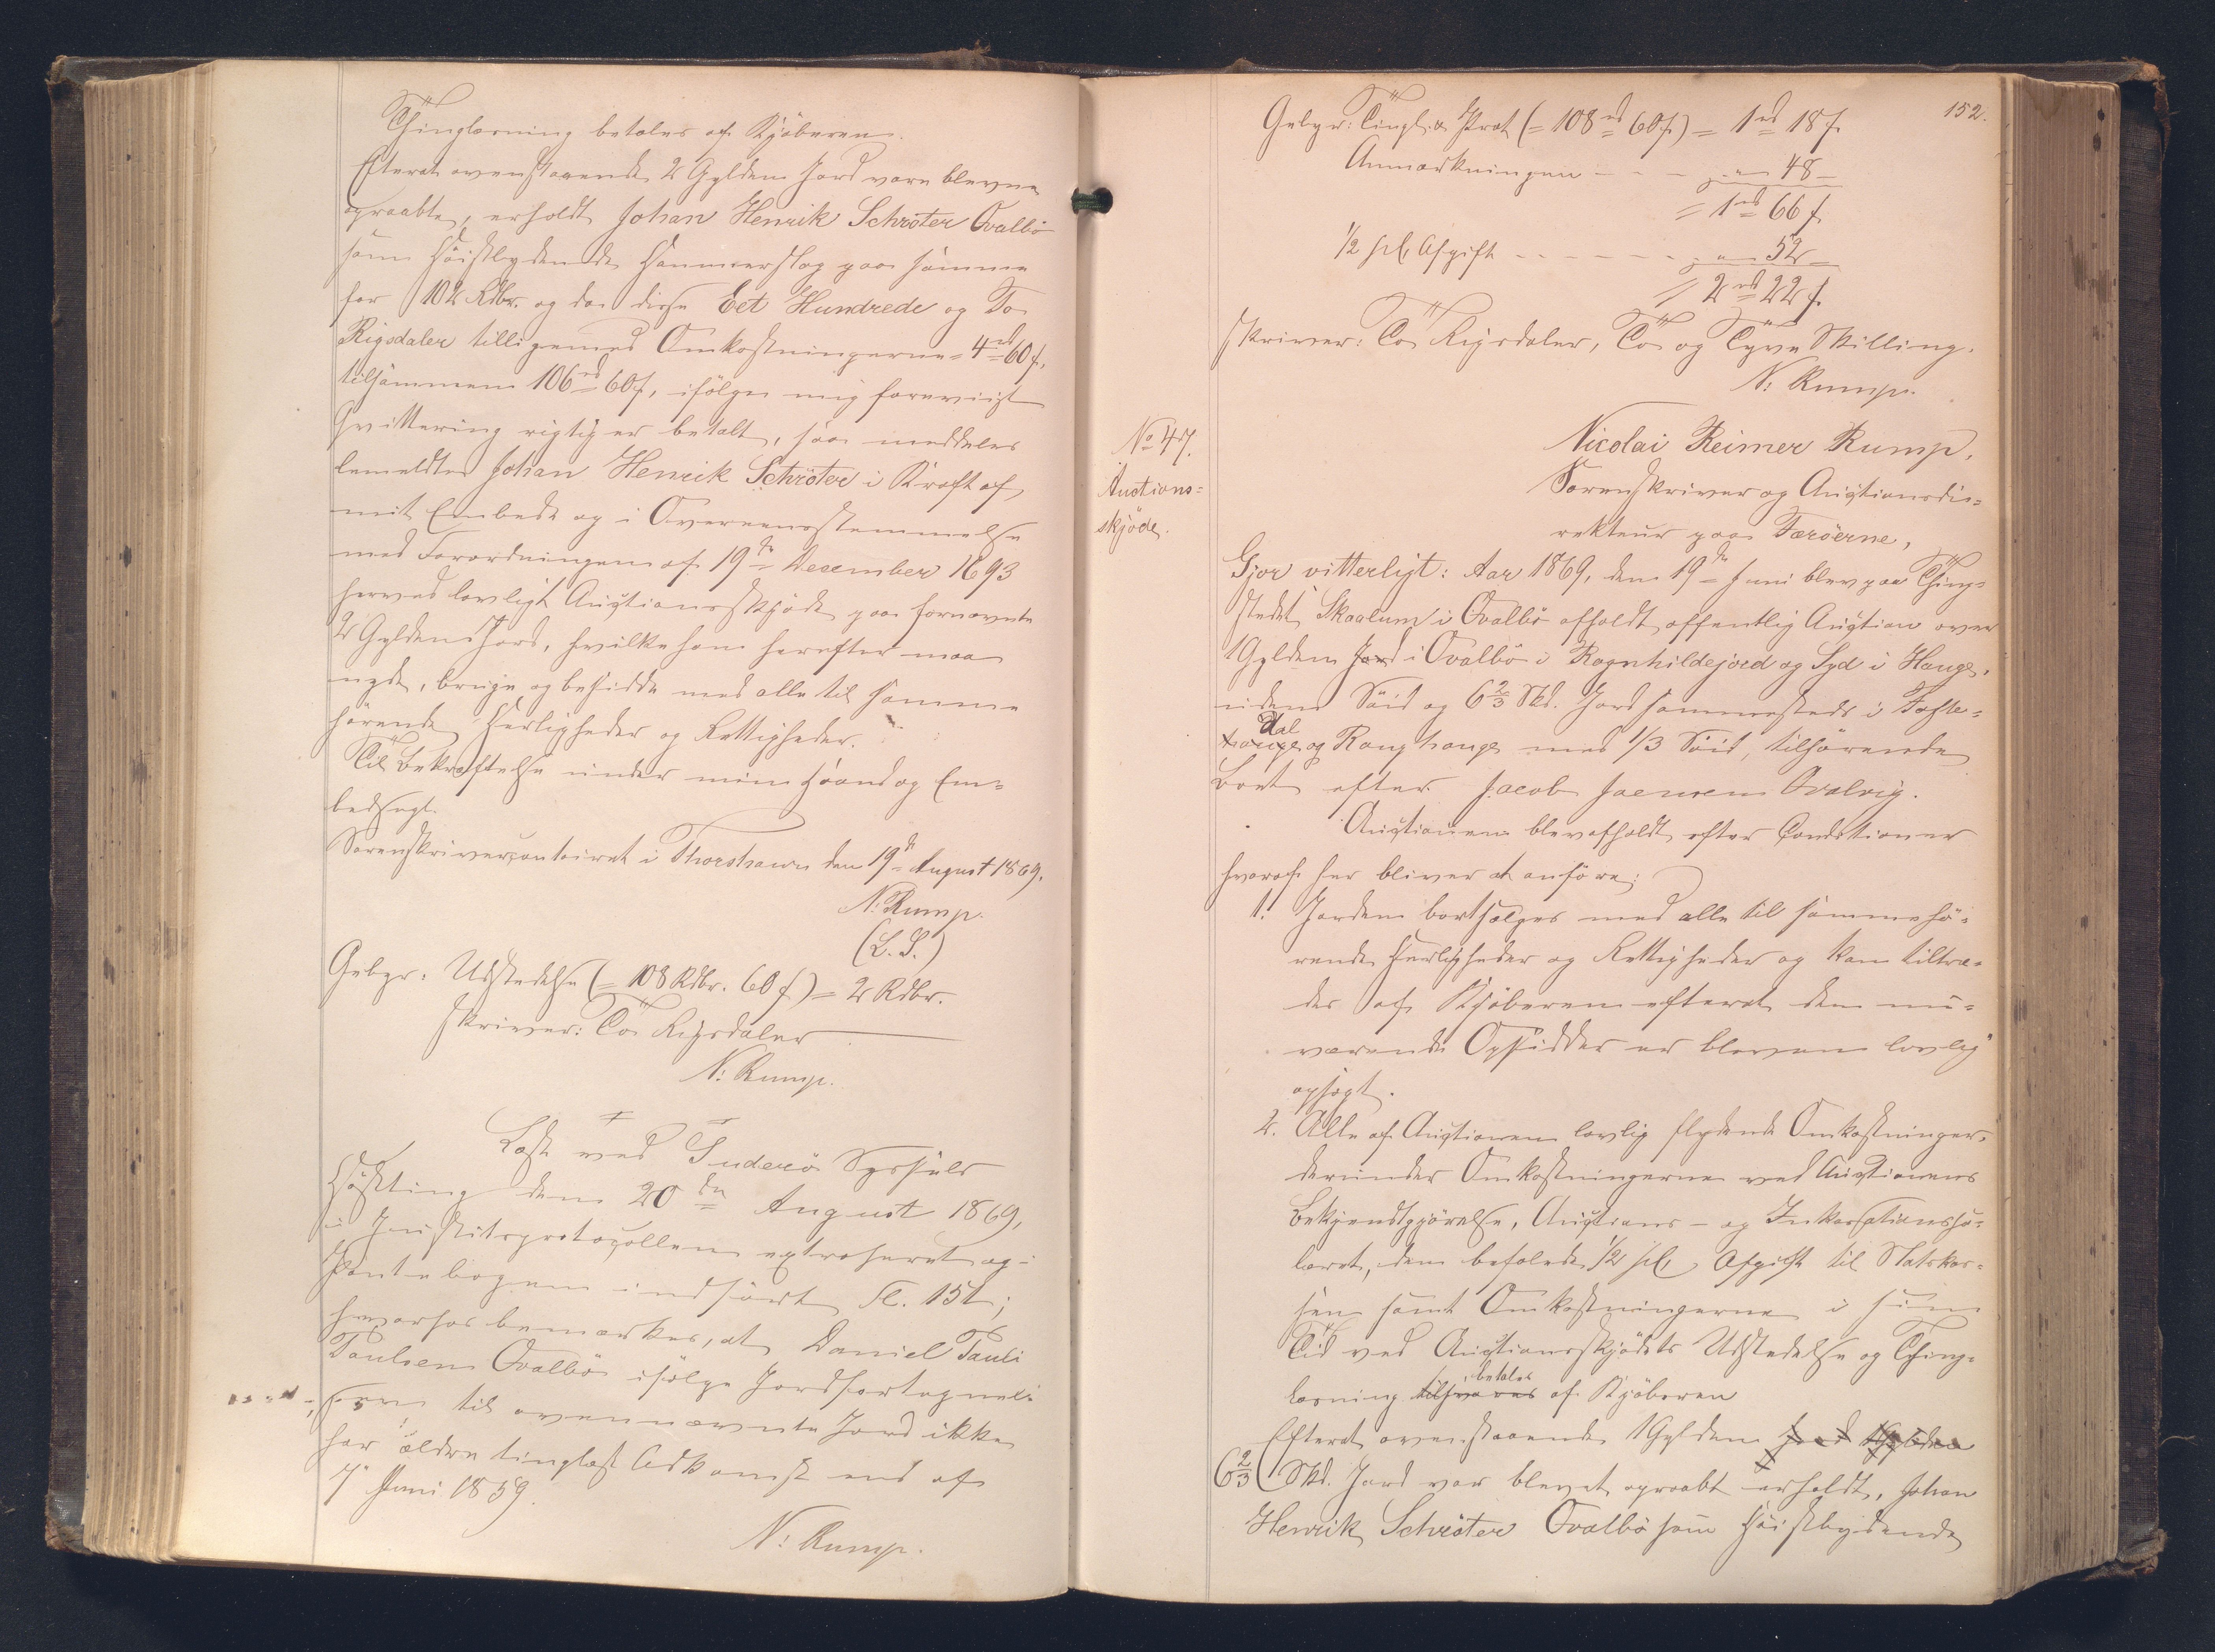 Thinglæsning betales af Kjøberen.
Efterat ovenstaaende 2 Gylden Jord vare blevne
opraabte, erholdt Johan Henrik Schröter Qvalbö
som Høistbydende Hammerslag paa samme
for 102 Rdlr. og da disse Eet Hundrede og To
Rigsdaler tilligemed Omkostningerne = 4 rd 60 s,
tilsammen 106 rd 60 s, ifølge mig foreviist
Qvittering rigtig er betalt, saa meddeles
bemeldte Johan Henrik Schröter i Kraft af
mit Embede og i Overeensstemmelse
med Forordningen af 19de December 1693
herved lovligt Auctionsskjøde paa fornævnte
2 Gylden Jord, hvilke han herefter maa
nyde, bruge og besidde med alle til samme
hørende Herligheder og Rettigheder.
Til Bekræftelse under min Haand og Em-
bedssegl.
Sorenskrivercontoiret i Thorshavn den 19de August 1869.
N: Rump.
(L. S.)
Gebyr: Udstedelse (= 108 Rdlr. 60 s) = 2 Rdlr.
skriver: To Rigsdaler
N: Rump.
Læst ved Suderö Syssels
Høstting den 20de August 1869,
i Justitsprotocollen extraheret og i
Pantebogen indført Fl. 151;
hvorhos bemærkes, at Daniel Pauli
Poulsen Qvalbö ifølge Jordfortegnel-
sen til ovennævnte Jord ikke
har ældre tinglæst Adkomst end af
7 Juni 1859.
N: Rump.
152.
Gebyr: Tingl. & Prot (= 108 rd 60 s) = 1 rd 18 s
Anmærkningen - - - 48 -
= 1 rd 66 s
1/2 pCt. Afgift - - - - - - 52 -
= 2 rd 22 s
skriver: To Rigsdaler, To og Tyve Skilling.
N: Rump.
No 47.
Auctions-
skjöde.
Nicolai Reimer Rump,
Sorenskriver og Auctionsdi-
recteur paa Færöerne,
Gjør vitterligt: Aar 1869, den 19de Juni blev paa Thing-
stedet Skaalum i Qvalbö afholdt offentlig Auction over
1 Gylden Jord i Qvalbö i Ragnhildejord og Syd i Hauge,
uden Söid og 6 2/3 Skd. Jord sammesteds i Tofte-
dal
hauge og Rang hauge med 1/3 Söid, tilhørende
Boet efter Jacob Joensen Qvalvig.
Auctionen blev afholdt efter Conditioner
hvoraf her bliver at anføre:
1. Jorden bortsælges med alle til samme hö-
rende Herligheder og Rettigheder og kan tiltræ-
des af Kjøberen efterat den nu-
værende Opsidder er bleven lovlig
opsagt.
2. Alle af Auctionen lovlig flydende Omkostninger,
derunder Omkostningerne ved Auctionens
Bekjendtgjørelse, Auctions- og Inkassationssa-
laret, den befalede 1/2 pCt. Afgift til Statskas-
sen samt Omkostningerne i sin
Tid ved Auctionsskjødets Udstedelse og Thing-
betales
læsning tilsvares af Kjøberen
Efterat ovenstaaende 1 Gylden Jord 1 Gylden
6 2/3 Skd. Jord var blevet opraabt erholdt, Johan
Henrik Schröter Qvalbö som Høistbydende